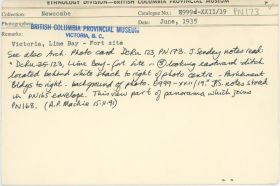 ETHNOLOGY DIVISION—BRITISH COLUMBIA PROVINCIAL MUSEUM
Newcombe
Catalogue No.: E999d-XXII/19 PN173
Photographer
BRITISH COLUMBIA PROVINCIAL MUSEUM
VICTORIA, B. C.
Date: June, 1935
Victoria, Lime Bay - Fort site
See also Arch. Photo card DcRu 123, PN173. J. Sendey notes read:
"DcRu-25:123, Lime Bay-fort site - ③ looking eastward ditch
located behind white shack to right of photo centre - Parliament
Bldgs to right - background of photo. E999-XXII/9." JS. notes stored
in PN165 envelope. This view part of panorama which joins
PN168. (A.P. Mackie 15.11.91)